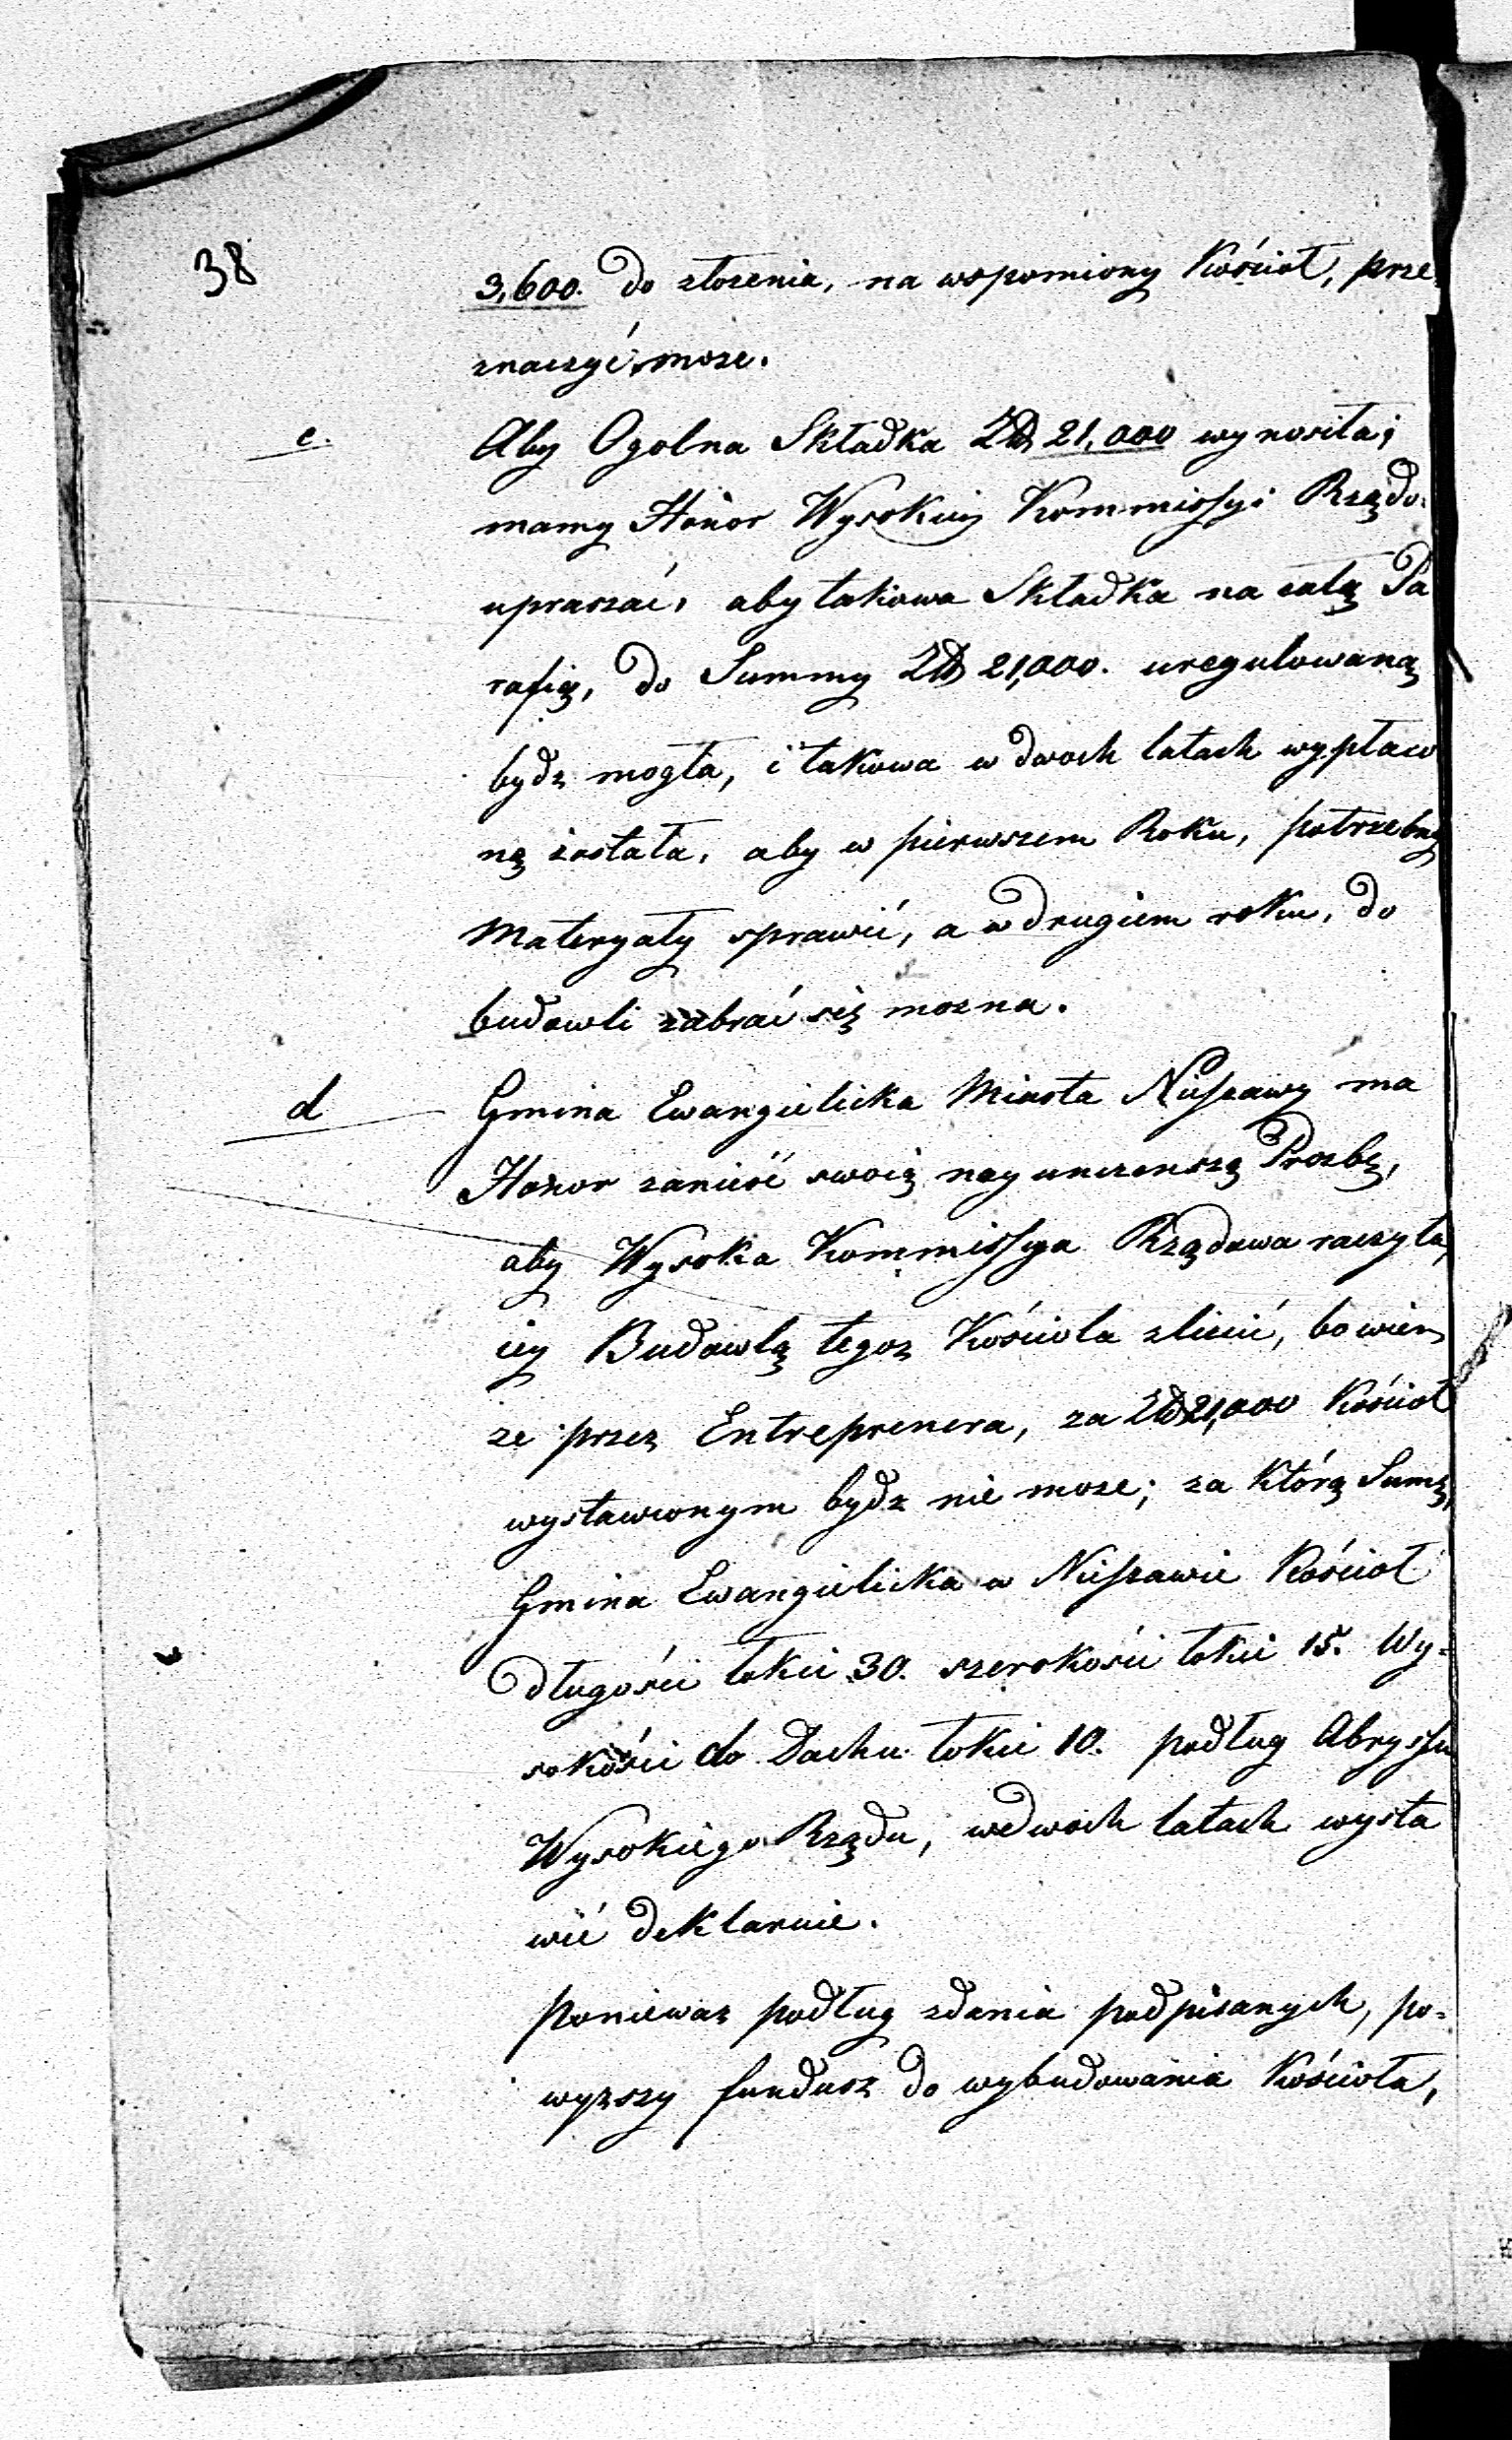 38
3,600. do złozenia, na wspomiony Kościoł, prze
znaczyć moze.
c.
Aby Ogolna Składka Zł 21,000 wynosiła;
mamy Honor Wysokiey Kommissyi Rządo.
upraszać, aby takowa Składka na całą Pa
rafią, do Summy Zł 21,000. uregulowaną
bydz mogła, i takowa w dwoch latach wypłaco
ną została, aby w pierwszem Roku, potrzebny
Materyały sprawić, a w drugiem roku, do
budowli zabrać się mozna.
d
Gmina Ewangielicka Miasta Nieszawy ma
Honor zanieść swoią nayunizenszą Prozbę,
aby Wysoka Kommissya Rządowa raczyła,
iey Budowlą tegoz Kościoła zlicić, bowiem
ze przez Entreprenera, za Zł 21,000 Kościoł
wystawionym bydz nie moze; za Którą Sumę,
Gmina Ewangielicka w Nieszawie Kościoł
długości łokci 30. szerokości łokci 15. Wy-
sokości do Dachu łokci 10. podług Abryssu
Wysokiego Rządu, wedwoch latach wysta
wić deklaruie.
Poniewaz podług zdania podpisanych, po-
wyzszy fundusz do wybudowania Kościoła,